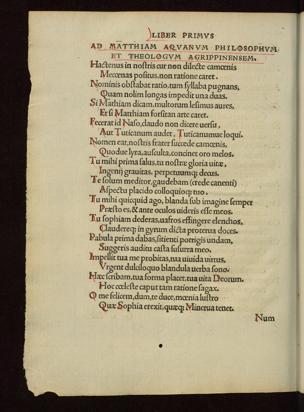 LIBER PRIMVS
AD MATTHIAM AQVANVM PHILOSOPHVM
ET THEOLOGVM AGRIPPINENSEM.
Hactenus in nostris cur non dilecte camœnis
Mecœnas positus, non ratione caret.
Nominis obstabat ratio, tum syllaba pugnans,
Quam nolim longas impedit una duis.
Si Mathiam dicam, multorum lesimus aures,
Et si Matthiam forsitan arte caret.
Fecerat id Naso, claudo non dicere versu,
Aut Tuticanum audet, Tuticanumue loqui.
Nomen eat, nostris frater succede camœnis,
Quo due lyra, ausculta, concinet oro melos.
Tu mihi prima salus, tu nostræ gloria vitæ,
Ingenij grauitas, perpetuumq; decus.
Te solum meditor, gaudebam (crede canenti)
Aspectu placido colloquioq; tuo.
Tu mihi quicquid ago, blanda sub imagine semper
Præsto es, & ante oculos uideris esse meos.
Tu sophiam dederas, uafros effingere elenchos,
Claudereq; in gyrum dicta proterua doces.
Pabula prima dabas, sitienti porrigis undam,
Suggeris auditu casta susurra meo.
Impellit tua me probitas, tua uiuida uirtus,
Vrgent dulciloquo blandula uerba sono.
Hæc scribam, tua forma placet, tua vita Deorum,
Hoc cœleste caput tam ratione sagax.
O me felicem, dum, te duce, mœnia lustro
Quæ Sophia erexit, quæq; Minerua tenet.
Num